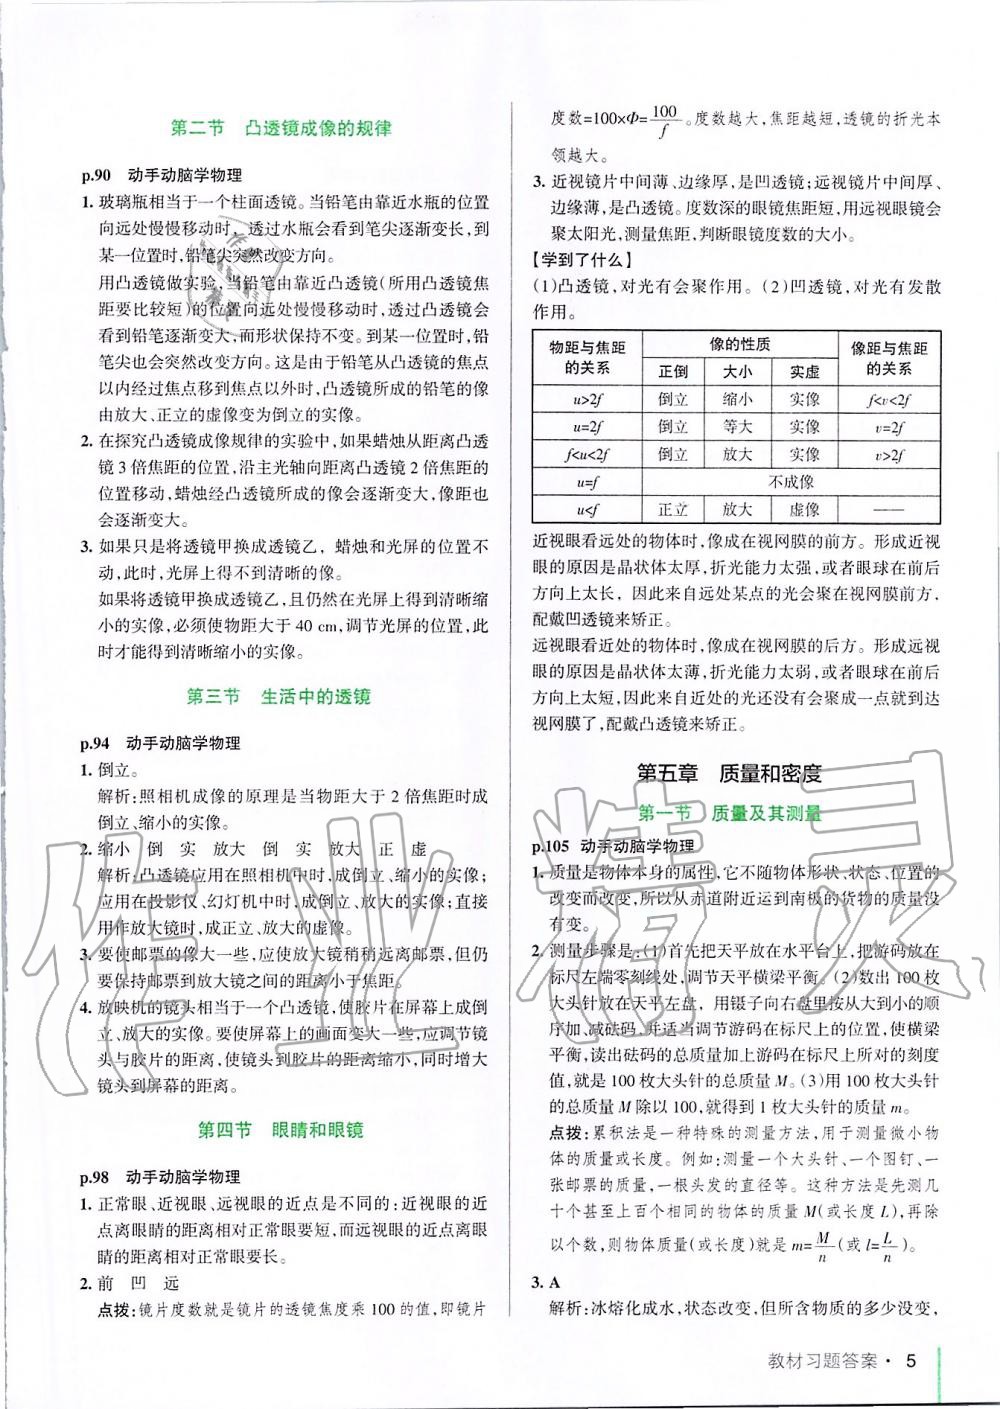 第二节 凸透镜成像的规律
p.90 动手动脑学物理
1. 玻璃瓶相当于一个柱面透镜。当铅笔由靠近水瓶的位置
向远处慢慢移动时，透过水瓶会看到笔尖逐渐变长，到
某一位置时，铅笔尖突然改变方向。
用凸透镜做实验，当铅笔由靠近凸透镜(所用凸透镜焦
距要比较短)的位置向远处慢慢移动时，透过凸透镜会
看到铅笔逐渐变大，而形状保持不变。到某一位置时，铅
笔尖也会突然改变方向。这是由于铅笔从凸透镜的焦点
以内经过焦点移到焦点以外时，凸透镜所成的铅笔的像
由放大、正立的虚像变为倒立的实像。
2. 在探究凸透镜成像规律的实验中，如果蜡烛从距离凸透
镜 3 倍焦距的位置，沿主光轴向距离凸透镜 2 倍焦距的
位置移动，蜡烛经凸透镜所成的像会逐渐变大，像距也
会逐渐变大。
3. 如果只是将透镜甲换成透镜乙，蜡烛和光屏的位置不
动，此时，光屏上得不到清晰的像。
如果将透镜甲换成透镜乙，且仍然在光屏上得到清晰缩
小的实像，必须使物距大于 40 cm，调节光屏的位置，此
时才能得到清晰缩小的实像。
第三节 生活中的透镜
p.94 动手动脑学物理
1. 倒立。
解析：照相机成像的原理是当物距大于 2 倍焦距时成
倒立、缩小的实像。
2. 缩小 倒 实 放大 倒 实 放大 正 虚
解析：凸透镜应用在照相机中时，成倒立、缩小的实像；
应用在投影仪、幻灯机中时，成倒立、放大的实像；直接
用作放大镜时，成正立、放大的虚像。
3. 要使邮票的像大一些，应使放大镜稍稍远离邮票，但仍
要保持邮票到放大镜之间的距离小于焦距。
4. 放映机的镜头相当于一个凸透镜，使胶片在屏幕上成倒
立、放大的实像。要使屏幕上的画面变大一些，应调节镜
头与胶片的距离，使镜头到胶片的距离缩小，同时增大
镜头到屏幕的距离。
第四节 眼睛和眼镜
p.98 动手动脑学物理
1. 正常眼、近视眼、远视眼的近点是不同的；近视眼的近
点离眼睛的距离相对正常眼要短，而远视眼的近点离眼
睛的距离相对正常眼要长。
2. 前 凹 远
点拨：镜片度数就是镜片的透镜焦度乘 100 的值，即镜片
度数=100×Φ=100/f。度数越大，焦距越短，透镜的折光本
领越大。
3. 近视镜片中间薄、边缘厚，是凹透镜；远视镜片中间厚、
边缘薄，是凸透镜。度数深的眼镜焦距短，用远视眼镜会
聚太阳光，测量焦距，判断眼镜度数的大小。
【学到了什么】
(1)凸透镜，对光有会聚作用。(2)凹透镜，对光有发散
作用。
物距与焦距的关系 像的性质 像距与焦距的关系
正倒 大小 实虚
u>2f 倒立 缩小 实像 f<v<2f
u=2f 倒立 等大 实像 v=2f
f<u<2f 倒立 放大 实像 v>2f
u=f 不成像
u<f 正立 放大 虚像 ——
近视眼看远处的物体时，像成在视网膜的前方。形成近视
眼的原因是晶状体太厚，折光能力太强，或者眼球在前后
方向上太长，因此来自远处某点的光会聚在视网膜前方，
配戴凹透镜来矫正。
远视眼看近处的物体时，像成在视网膜的后方。形成远视
眼的原因是晶状体太薄，折光能力太弱，或者眼球在前后
方向上太短，因此来自近处的光还没有会聚成一点就到达
视网膜了，配戴凸透镜来矫正。
第五章 质量和密度
第一节 质量及其测量
p.105 动手动脑学物理
1. 质量是物体本身的属性，它不随物体形状、状态、位置的
改变而改变，所以从赤道附近运到南极的货物的质量没
有变。
2. 测量步骤是：(1)首先把天平放在水平台上，把游码放在
标尺左端零刻线处，调节天平横梁平衡。(2)数出 100 枚
大头针放在天平左盘，用镊子向右盘里按从大到小的顺
序加、减砝码，并适当调节游码在标尺上的位置，使横梁
平衡，读出砝码的总质量加上游码在标尺上所对的刻度
值，就是 100 枚大头针的总质量 M。(3)用 100 枚大头针
的总质量 M 除以 100，就得到 1 枚大头针的质量 m。
点拨：累积法是一种特殊的测量方法，用于测量微小物
体的质量或长度。例如：测量一个大头针、一个图钉、一
张邮票的质量，一根头发的直径等。这种方法是先测几
十个甚至上百个相同的物体的质量 M(或长度 L)，再除
以个数，则物体质量(或长度)就是 m=M/n(或 l=L/n)。
3. A
解析：冰熔化成水，状态改变，但所含物质的多少没变，
教材习题答案·5
作业精灵